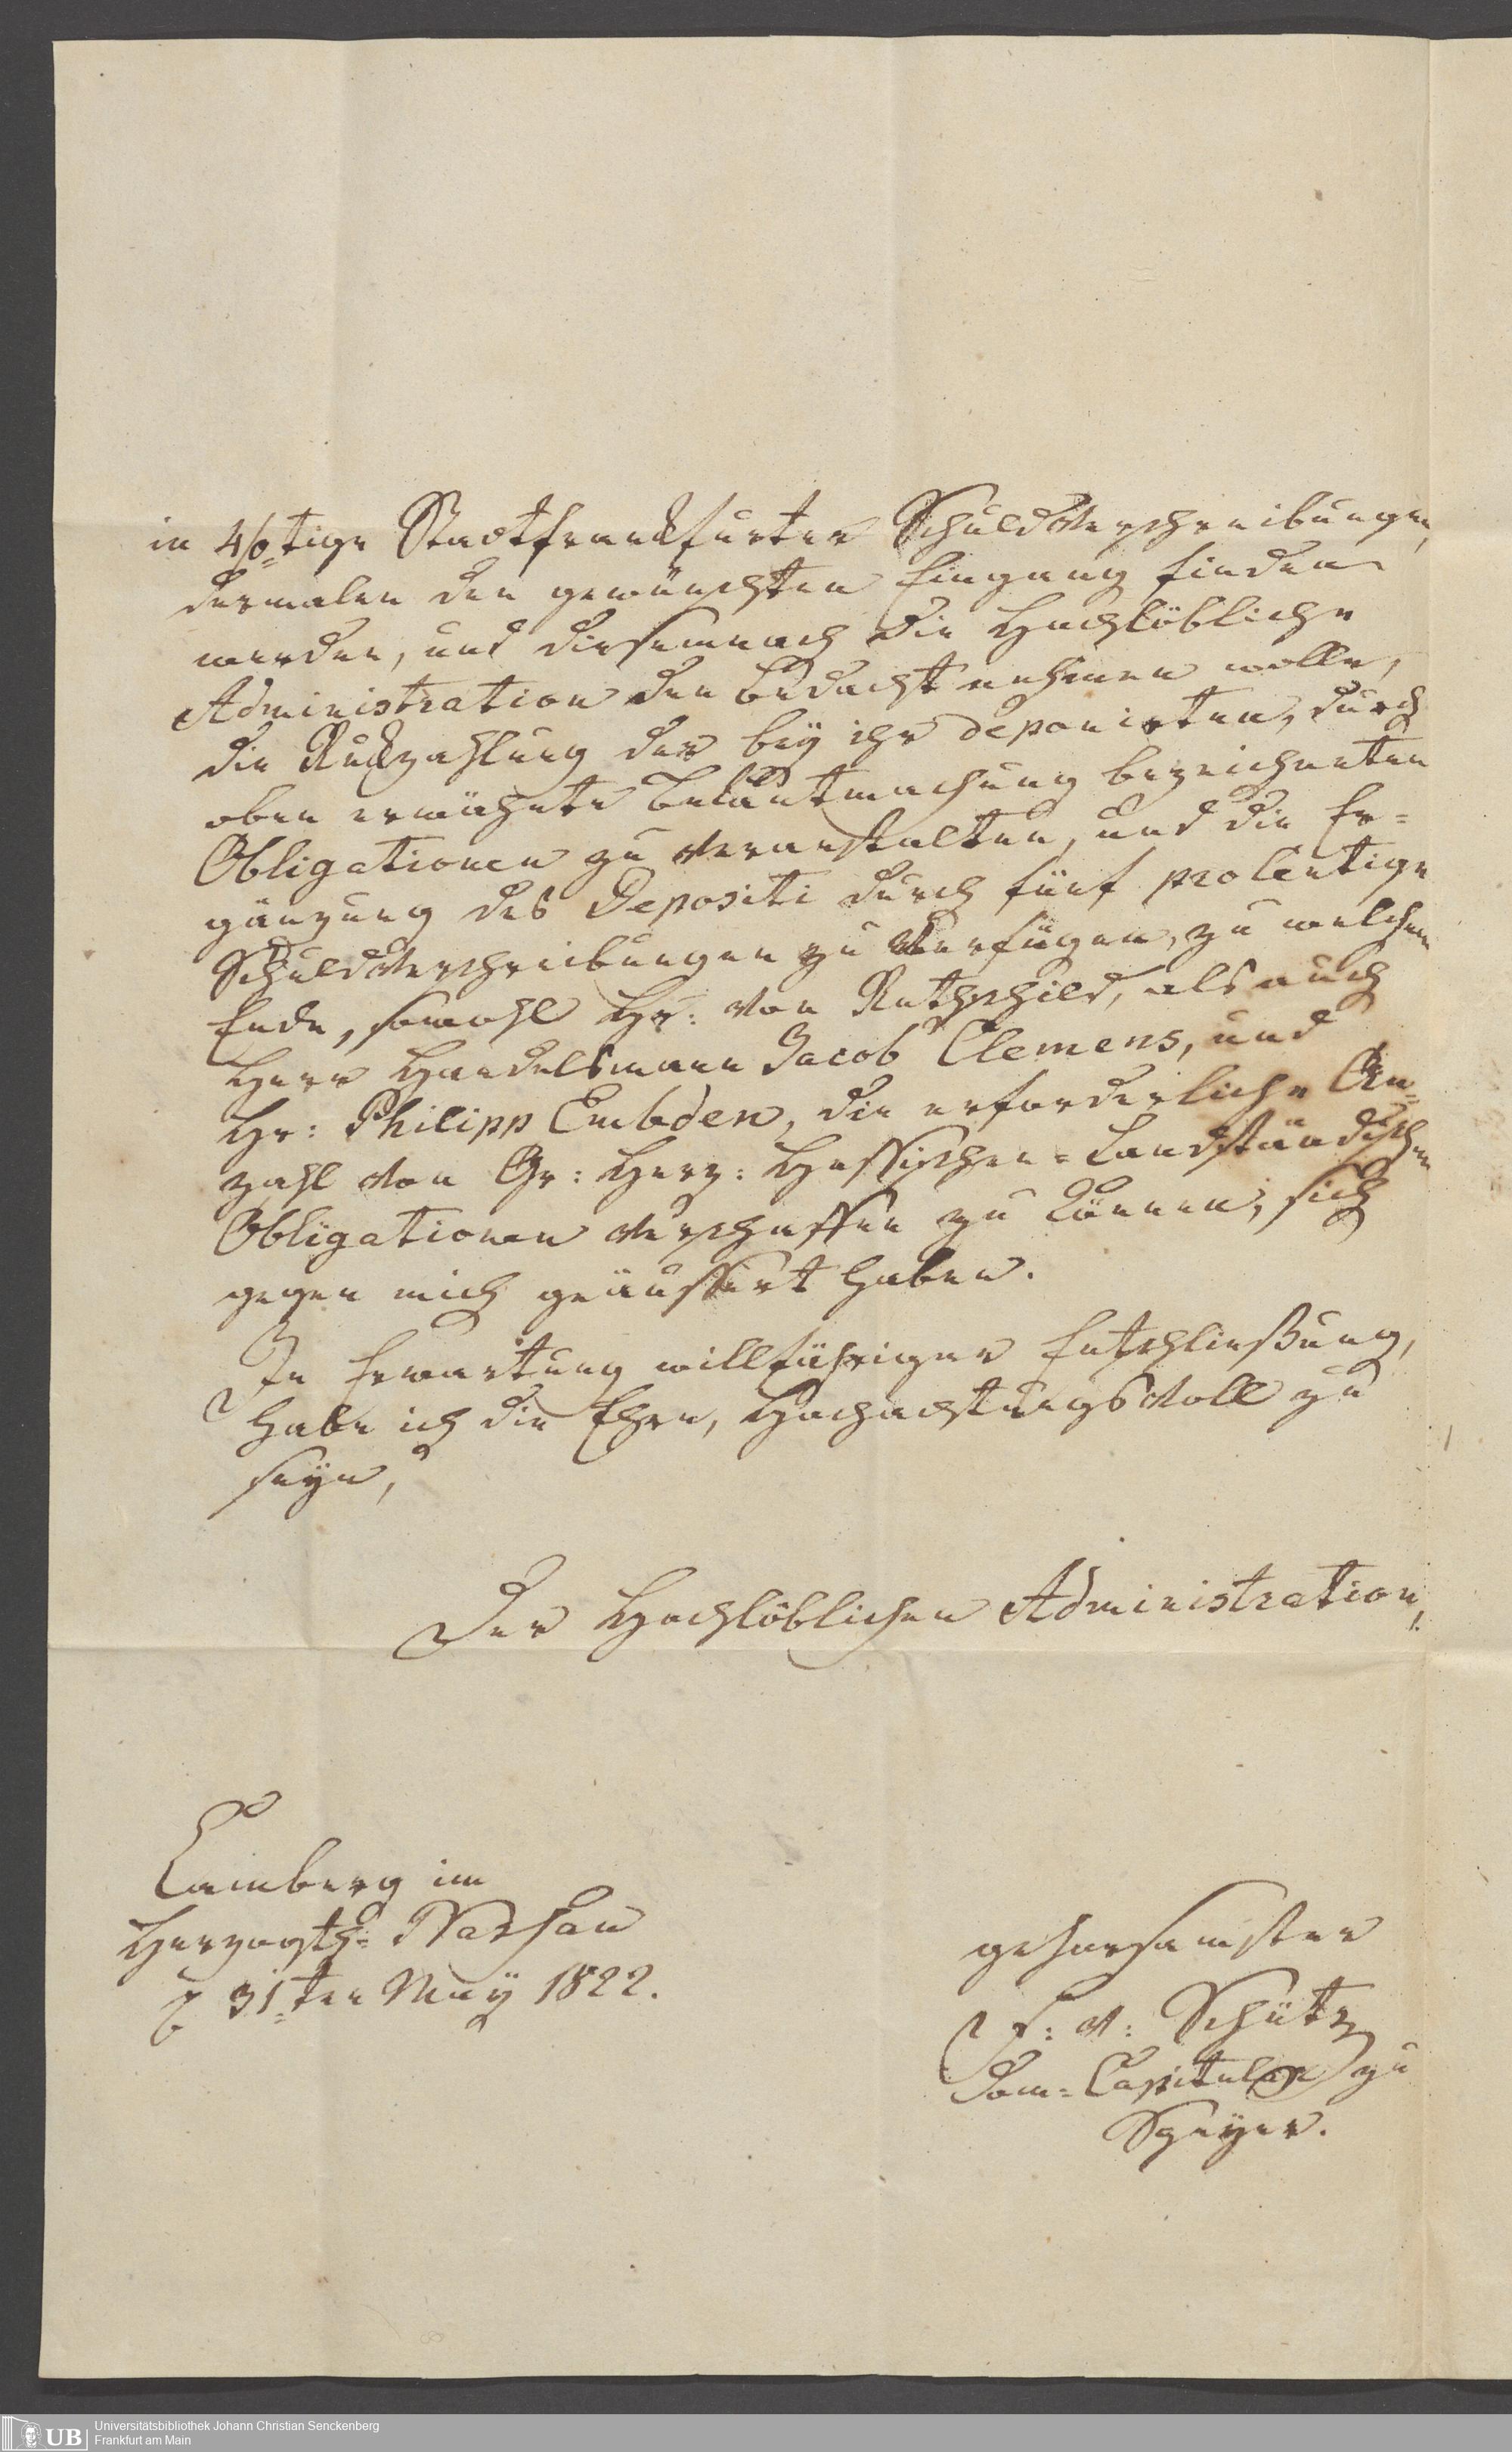 in 4/0tige Stadtfrankfurter Schuldverschreibungen,
dermalen den gewünschten Eingang finden
werden, und diesemnach die Hochlöbliche
Administration den Bedacht nehmen wolle,
die Rückzahlung der bey ihr deponirten, durch
oben erwähnte Bekantmachung bezeichneten
Obligationen zu veranstalten, und die Er=
gänzung des Depositi durch fünf proCentige
Schuldverschreibungen zu verfügen, zu welchem
Ende, sowohl Hr: von Rothschild, als auch
Herr Handelsmann Jacob Clemens, und
Hr: Philipp Embden, die erforderliche An=
zahl von Gr: Herz: Hessischen=Landständischen
Obligationen verschaffen zu können, sich
gegen mich geäussert haben.
In Erwartung willfähriger Entschließung,
habe ich die Ehre, Hochachtungsvoll zu
seyn,
Der Hochlöblichen Administration,
Camberg im
Herzogth: Nassau
d 31ten May 1822.
gehorsamster
F: v: Schütz
Dom=Capitular zu
Speyer.
UB
Universitätsbibliothek Johann Christian Senckenberg
Frankfurt am Main